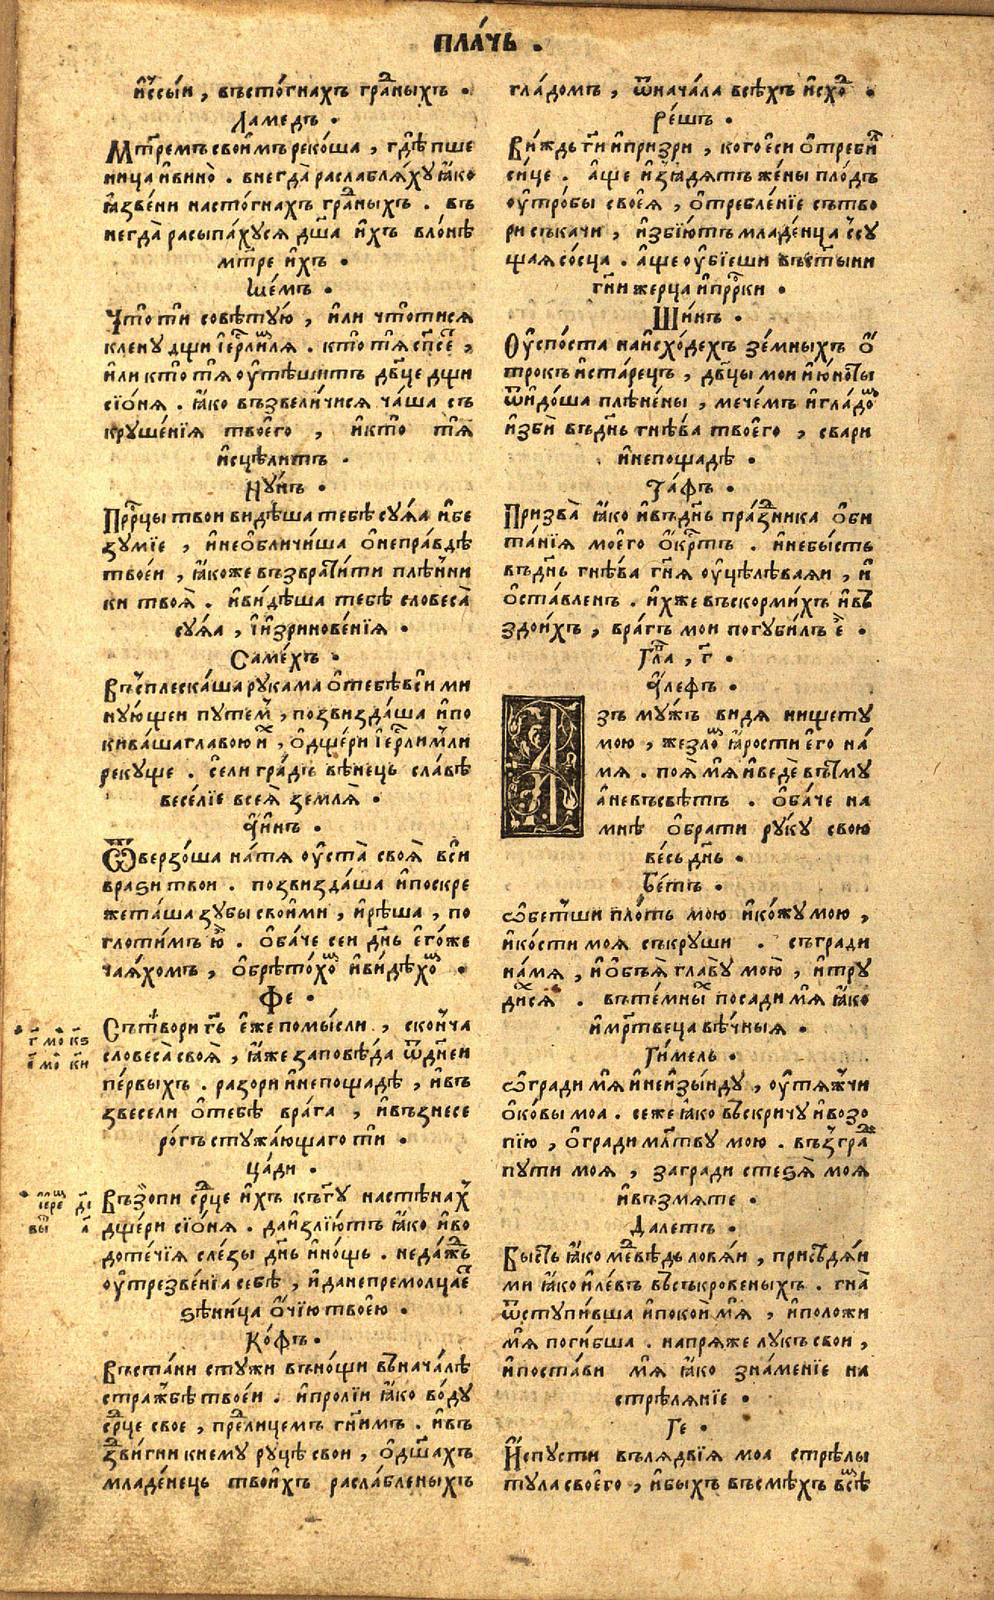 плачь .
и҆ссы́и , въсто́гнахъ гра́ⷣныхъ .
Ламедъ .
Мт҃ремъ свои́мъ реко́ша , гдѣ̀ пше
ница и҆вино̀ . внегда̀ раслабля́ху ꙗ҆́ко
ꙗ҆́звени настогнахъ гра́ⷣныхъ . въ
негда̀ расыпа́хуся дш҃а и҆́хъ вло́нѣ
мт҃ре и҆́хъ .
Ше́мъ .
Что̀ ти совѣ́тую , и҆ли что̀тися
клену дщи і҆ерⷭ҇ли́ⷨля . кто̀ тя сп҃се́ⷮ ,
и҆ли кто̀ тя ѹ҆тѣши́тъ дв҃це дщи
сіо́ня . ꙗ҆́ко възвели́чися ча́ша съ
круше́нія твоего̀ , и҆кто̀ тя̀
и҆сцѣли́тъ .
Нуⷩ҇ъ .
Прⷪ҇рцы твои ви́дѣша тебѣ̀ суꙗ҆ и҆бе
зу́мїе , и҆нео҆бличи́ша ѻ҆непра́вдѣ
твое́и , ꙗ҆́коже възврати́ти плѣ́нни
ки твоя̀ . и҆ви́дѣша тебѣ̀ словеса̀
суꙗ҆ , і҆и҆зринове́нїя .
Саме́хъ .
Въсплеска́ша рукама ѻ҆тебѣ̀ вси̑ ми
ную́щеи путе́мъ , позвизда́ша и҆по
кива́ша главою и҆́хъ , ѻ҆дще́ри і҆ерⷭ҇ли́мли
рекуще . се́ли гра́дъ вѣне́цъ сла́вѣ
весе́лїе все́я земля̀ .
А҆́инъ .
Ѿверзо́ша на́тя ѹ҆ста̀ своя̀ вси̑
врази твои . позвизда́ша и҆поскре
жета́ша зубы свои́ми , и҆рѣ́ша , по
глоти́мъ ю҆̀ . ѻ҆ба́че сеи дн҃ь е҆го́же
чая́хомъ , ѻ҆брѣто́хоⷨ и҆ви́дѣхоⷨ .
Фе .
Сътвори гь҃ е҆́же помы́сли , сконча
словеса̀ своя̀ , ꙗ҆́же заповѣ́да ѿдне́и
пе́рвыхъ . разори и҆непощадѣ̀ , и҆въ
звесели ѻ҆тебѣ̀ врага , и҆възнесе
ро́гъ стужа́ющаго ти .
Ца́ди .
Възопи срⷣце и҆́хъ къгу҃ настѣна́хъ
дще́ри сіо́ня . даи҆злїю́тъ ꙗ҆́ко и҆во
доте́чїя сле́зы дн҃ь и҆но́щь . неда́жⷣь
ѹ҆трезве́нїа себѣ̀ , и҆данепремолца́еⷮ
зѣни́ца ѻ҆́чїю твое́ю .
Ко́фъ .
Въста́ни стужи въно́щи въ нача́лѣ
стра́жбѣ твое́и . и҆проліи ꙗ҆́ко во́ду
срⷣце свое , преⷣлицемъ гн҃имъ . и҆въ
звⷣигни кнему руцѣ свои , ѻ҆дш҃ахъ
младе́нецъ твои́хъ раслабленыхъ
г҃ мо ка҃ѕ
мо к҃и
і҆ере́ⷨ
гла́домъ , ѿнача́ла всѣ́хъ и҆схо́ⷣ .
Ре́шъ .
Ви́ждь ги҃ и҆призри , кого е҆си ѻ҆треби́ⷧ
си́це . а҆́ще и҆зⸯꙗдя́тъ же́ны пло́дъ
ѹ҆тро́бы свое́я , ѻ҆требле́нїе сътво
ри съкачи , и҆збїю́тъ младе́нца ссу
щая со́сца . а҆́ще ѹ҆бїе́ши въст҃ыни
гн҃и жерца и҆прⷪ҇рки .
Ши́нъ .
Оу҆спо́ста наи҆схо́дехъ зе́мныхъ ѻ҆́
трокъ и҆ста́рецъ , дв҃цы мои и҆ю҆́ноты
ѿи҆до́ша плѣне́ны , мече́мъ и҆гла́доⷨ
и҆зби̑ въдн҃ь гнѣ́ва твоего , свари
и҆непощадѣ .
Та́фъ .
Призва̀ ꙗ҆́ко и҆въдн҃ь пра́зⷣника ѻ҆би
та́нїя моего ѻ҆́крⷭ҇тъ . и҆небы́сть
въдн҃ь гнѣ́ва гн҃я ѹ҆цѣлѣваяи , и҆
ѻ҆ста́вленъ . и҆́хже въскорми́хъ и҆въ
здои́хъ , вра́гъ мои погуби́лъ е҆̀ .
Гла̀ , г҃ .
А҆́лефъ .
Азъ му́жъ видя нищету
мою , жезло́ⷨ ꙗ҆́рости е҆го на́
мя . поя̀ мя и҆ведѐ вътму
а҆невъсвѣ́тъ . ѻ҆ба́че на
мнѣ ѻ҆брати ру́ку свою
ве́сь дн҃ь .
Бе́тъ .
Ѡ҆бетши пло́ть мою и҆ко́жу мою ,
и҆ко́сти моя̀ съкруши . съгради
на́мя , и҆ѻ҆бъя̀ главу мою̀ , и҆тру
ди́ся . вътемны́хъ посади мя ꙗ҆́ко
и҆мр҃твеца вѣ́чныя .
Ги́мель .
Ѡ҆гради мя и҆неи҆зы́иду , ѹ҆тяжчи
ѻ҆ко́вы моа . сеже ꙗ҆́ко въскричу и҆возо
пїю , ѻ҆гради мл҃тву мою . възⸯграⷣ
пути моя , загради стезя̀ моя
и҆възмяте .
Далетъ .
Бы́сть ꙗ҆́ко меⷣвѣдь ловяи , присѣдяи
ми ꙗ҆́ко и҆ле́въ въсъкровеныхъ . гна̀
ѿступи́вша и҆покои мя , и҆положи
мя поги́бша . напряже лукъ свои ,
и҆поста́ви мя ꙗ҆́ко зна́менїе на
стрѣля́нїе .
Ге .
И҆спусти въ лядвїя моа стрѣлы
тула своего , и҆быхъ въсмѣхъ всѣⷨ